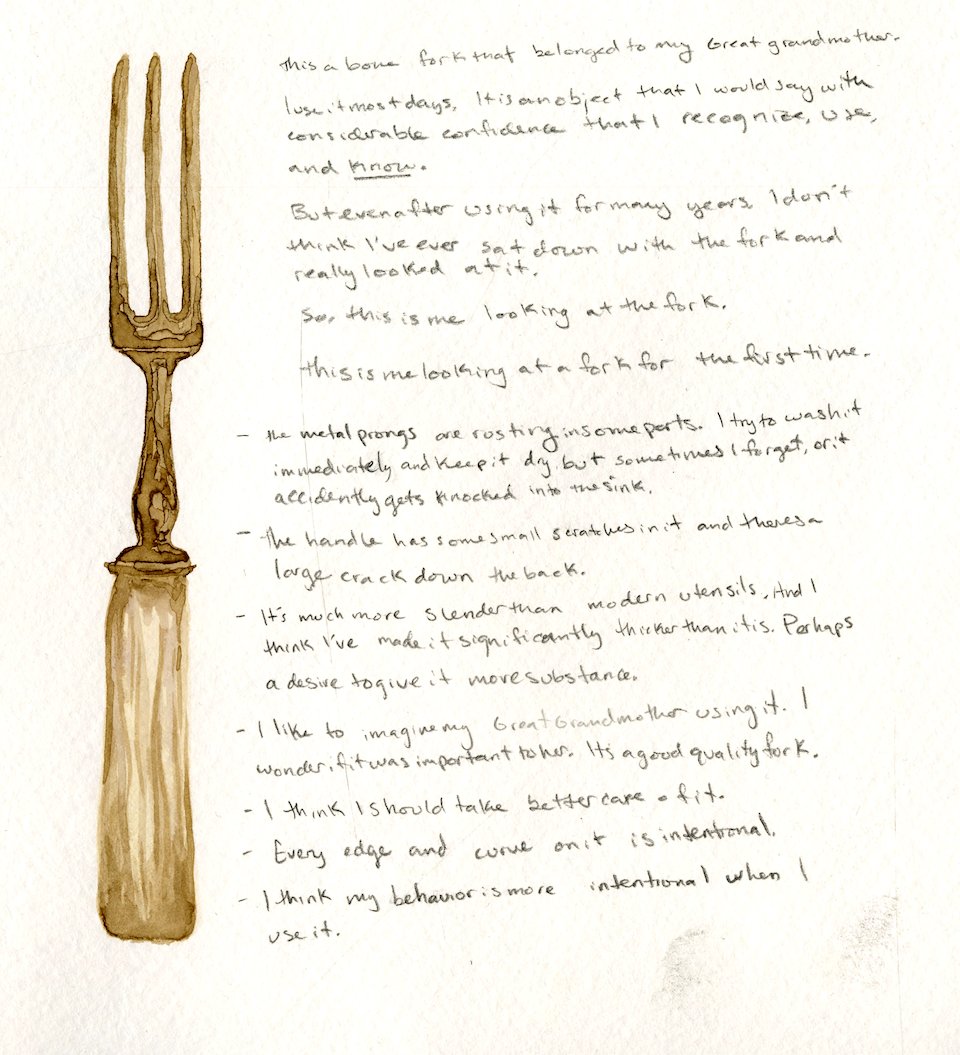 This a bone fork that belonged to my Great grandmother.
I use it most days. It is an object that I would say with
considerable confidence that I recognize, use,
and know.
But even after using it for many years, I don't
think I've ever sat down with the fork and
really looked at it.
So, this is me looking at the fork.
This is me looking at a fork for the first time.
- The metal prongs are rusting in some parts. I try to wash it
immediately and keep it dry but sometimes I forget, or it
accidently gets knocked into the sink.
- The handle has some small scratches in it and theres a
large crack down the back.
- It's much more slender than modern utensils. And I
think I've made it significantly thicker than it is. Perhaps
a desire to give it more substance.
- I like to imagine my Great Grandmother using it. I
wonder if it was important to her. It's a good quality fork.
- I think I should take better care of it.
- Every edge and curve on it is intentional.
- I think my behavior is more intentional when I
use it.